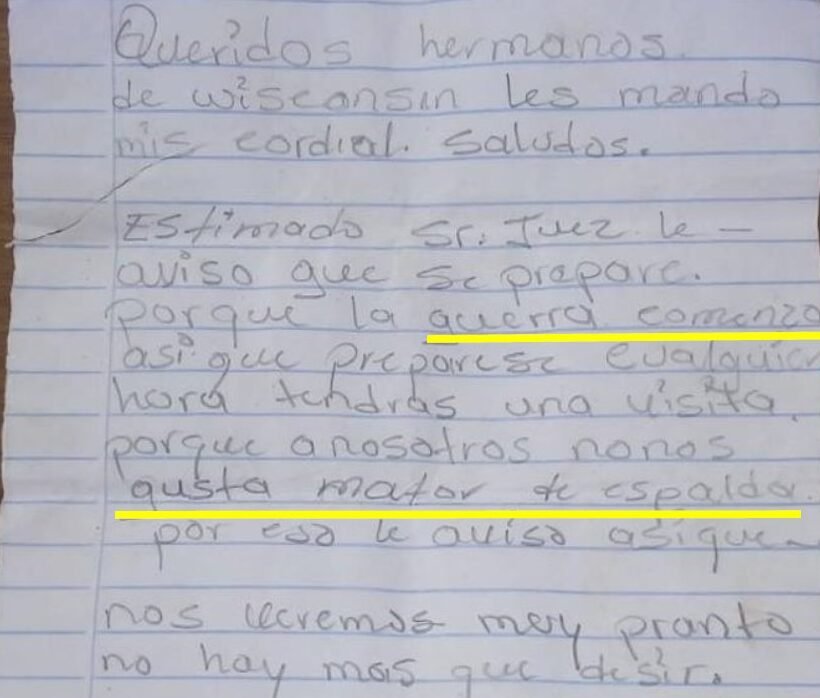 Queridos hermanos.
de wisconsin les mando
mis cordial. saludos.
Estimado Sr. Juez le -
aviso que se prepare.
porque la guerra comenzo
asi que preparese cualquier
hora tendras una visita.
porque a nosotros nonos
gusta matar de espalda.
por eso le aviso asique -
nos veremos muy pronto
no hay mas que desir.